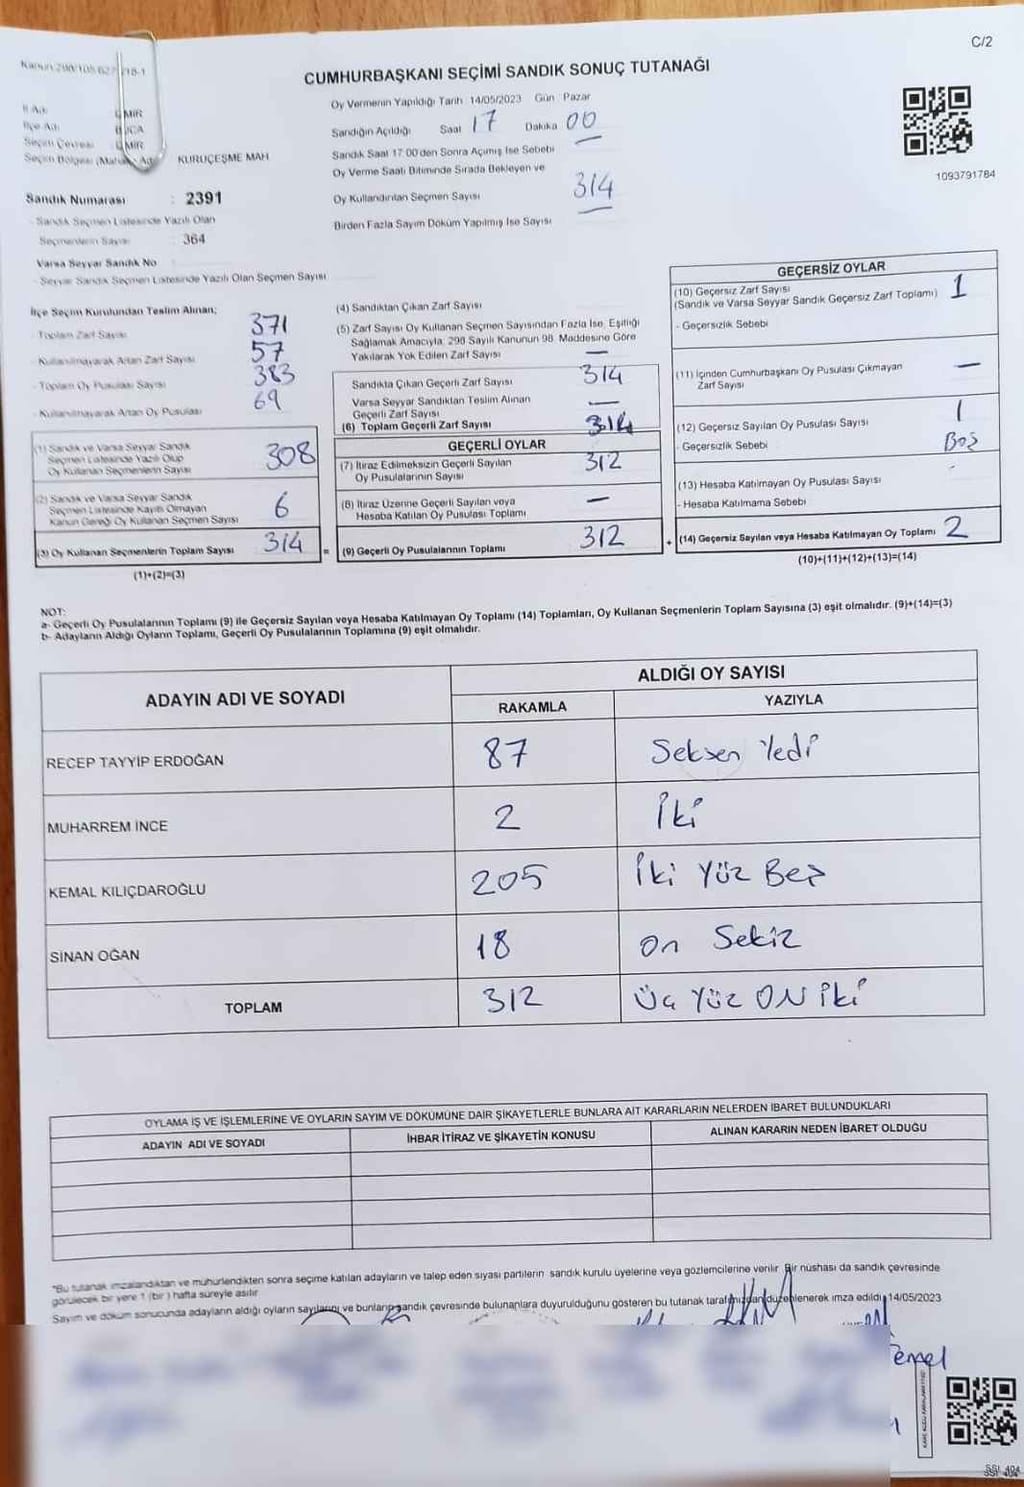 C/2
Kanun 298/105
CUMHURBAŞKANI SEÇİMİ SANDIK SONUÇ TUTANAĞI
Oy Vermenin Yapıldığı Tarih 14/05/2023 Gün Pazar
İl Adı
İlçe Adı
Seçim Çevresi
Seçim Bölgesi KURUÇEŞME MAH
Sandığın Açıldığı Saat 17 Dakika 00
Sandık Saat 17:00'den Sonra Açımış İse Sebebi
Oy Verme Saati Bitiminde Sırada Bekleyen ve
Oy Kullandırılan Seçmen Sayısı 314
Birden Fazla Sayım Döküm Yapılmış İse Sayısı
1093791784
Sandık Numarası : 2391
- Sandık Seçmen Listesinde Yazılı Olan
Seçmenlerin Sayısı : 364
Varsa Seyyar Sandık No
- Seyyar Sandık Seçmen Listesinde Yazılı Olan Seçmen Sayısı
İlçe Seçim Kurulundan Teslim Alınan;
- Toplam Zarf Sayısı 371
- Kullanılmayarak Artan Zarf Sayısı 57
- Toplam Oy Pusulası Sayısı 383
- Kullanılmayarak Artan Oy Pusulası 69
(1) Sandık ve Varsa Seyyar Sandık
Seçmen Listesinde Yazılı Olup
Oy Kullanan Seçmenlerin Sayısı 308
(2) Sandık ve Varsa Seyyar Sandık
Seçmen Listesinde Kayıtlı Olmayan
Kanun Gereği Oy Kullanan Seçmen Sayısı 6
(3) Oy Kullanan Seçmenlerin Toplam Sayısı 314 =
(1)+(2)=(3)
(4) Sandıktan Çıkan Zarf Sayısı
(5) Zarf Sayısı Oy Kullanan Seçmen Sayısından Fazla İse, Eşitliği
Sağlamak Amacıyla, 298 Sayılı Kanunun 98. Maddesine Göre
Yakılarak Yok Edilen Zarf Sayısı —
Sandıkta Çıkan Geçerli Zarf Sayısı 314
Varsa Seyyar Sandıktan Teslim Alınan
Geçerli Zarf Sayısı —
(6) Toplam Geçerli Zarf Sayısı 314
GEÇERLİ OYLAR
(7) İtiraz Edilmeksizin Geçerli Sayılan
Oy Pusulasının Sayısı 312
(8) İtiraz Üzerine Geçerli Sayılan veya
Hesaba Katılan Oy Pusulası Toplamı —
(9) Geçerli Oy Pusulalarının Toplamı 312 +
GEÇERSİZ OYLAR
(10) Geçersiz Zarf Sayısı
(Sandık ve Varsa Seyyar Sandık Geçersiz Zarf Toplamı) 1
- Geçersizlik Sebebi
(11) İçinden Cumhurbaşkanı Oy Pusulası Çıkmayan
Zarf Sayısı —
(12) Geçersiz Sayılan Oy Pusulası Sayısı 1
- Geçersizlik Sebebi Boş
(13) Hesaba Katılmayan Oy Pusulası Sayısı -
- Hesaba Katılmama Sebebi
(14) Geçersiz Sayılan veya Hesaba Katılmayan Oy Toplamı 2
(10)+(11)+(12)+(13)=(14)
NOT:
a- Geçerli Oy Pusulalarının Toplamı (9) ile Geçersiz Sayılan veya Hesaba Katılmayan Oy Toplamı (14) Toplamları, Oy Kullanan Seçmenlerin Toplam Sayısına (3) eşit olmalıdır. (9)+(14)=(3)
b- Adayların Aldığı Oyların Toplamı, Geçerli Oy Pusulalarının Toplamına (9) eşit olmalıdır.
ADAYIN ADI VE SOYADI
ALDIĞI OY SAYISI
RAKAMLA YAZIYLA
RECEP TAYYİP ERDOĞAN 87 Seksen Yedi
MUHARREM İNCE 2 İki
KEMAL KILIÇDAROĞLU 205 İki Yüz Beş
SİNAN OĞAN 18 On Sekiz
TOPLAM 312 Üç Yüz ON İki
OYLAMA İŞ VE İŞLEMLERİNE VE OYLARIN SAYIM VE DÖKÜMÜNE DAİR ŞİKAYETLERLE BUNLARA AİT KARARLARIN NELERDEN İBARET BULUNDUKLARI
ADAYIN ADI VE SOYADI İHBAR İTİRAZ VE ŞİKAYETİN KONUSU ALINAN KARARIN NEDEN İBARET OLDUĞU
*Bu tutanak imzalandıktan ve mühürlendikten sonra seçime katılan adayların ve talep eden siyasi partilerin sandık kurulu üyelerine veya gözlemcilerine verilir. Bir nüshası da sandık çevresinde
görülecek bir yere 1 (bir) hafta süreyle asılır.
Sayım ve döküm sonucunda adayların aldığı oyların sayılarını ve bunların sandık çevresinde bulunanlara duyurulduğunu gösteren bu tutanak tarafımızdan düzenlenerek imza edildi. 14/05/2023